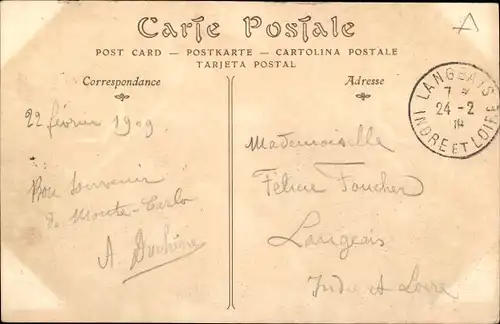 Carte Postale
POST CARD — POSTKARTE — CARTOLINA POSTALE
TARJETA POSTAL
Correspondance
22 février 1909
Bon Souvenir
de Monte-Carlo
A
Adresse
LANGEAIS
7
24-2
INDRE ET LOIRE
Mademoiselle
Félicie Foucher
Langeais
Indre et Loire